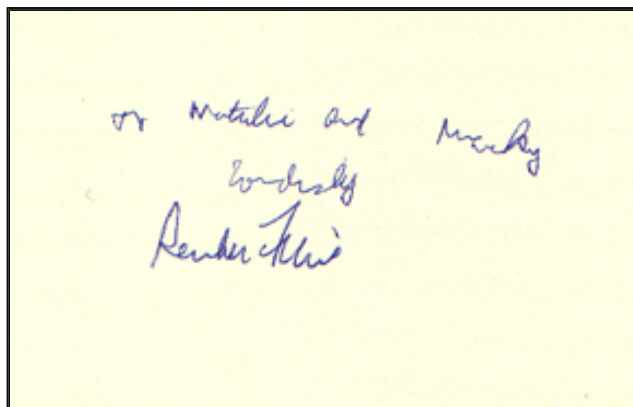 To Natalie and Marky
Cordially
Reuben Fine